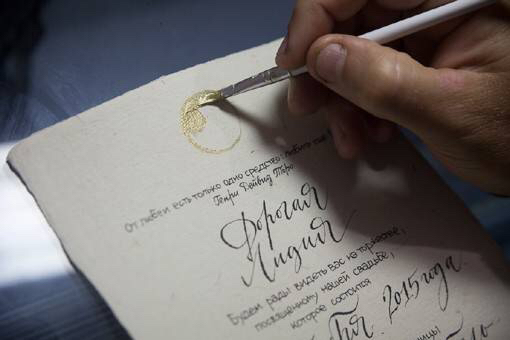 От любви есть только одно средство: любить еще
Генри Дейвид Торо
Дорогая
Лидия
Будем рады видеть вас на торжестве,
посвященному нашей свадьбе,
которое состоится
2015 года